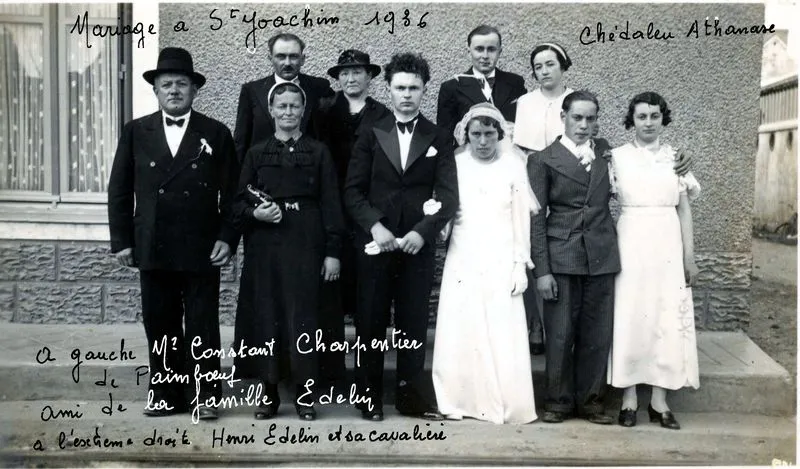 Mariage a St Joachim 1936
Chédaleu Athanase
a gauche Mr Constant Charpentier
de Paimbœuf
ami de la famille Edelin
a l'extreme droite Henri Edelin et sa cavalière